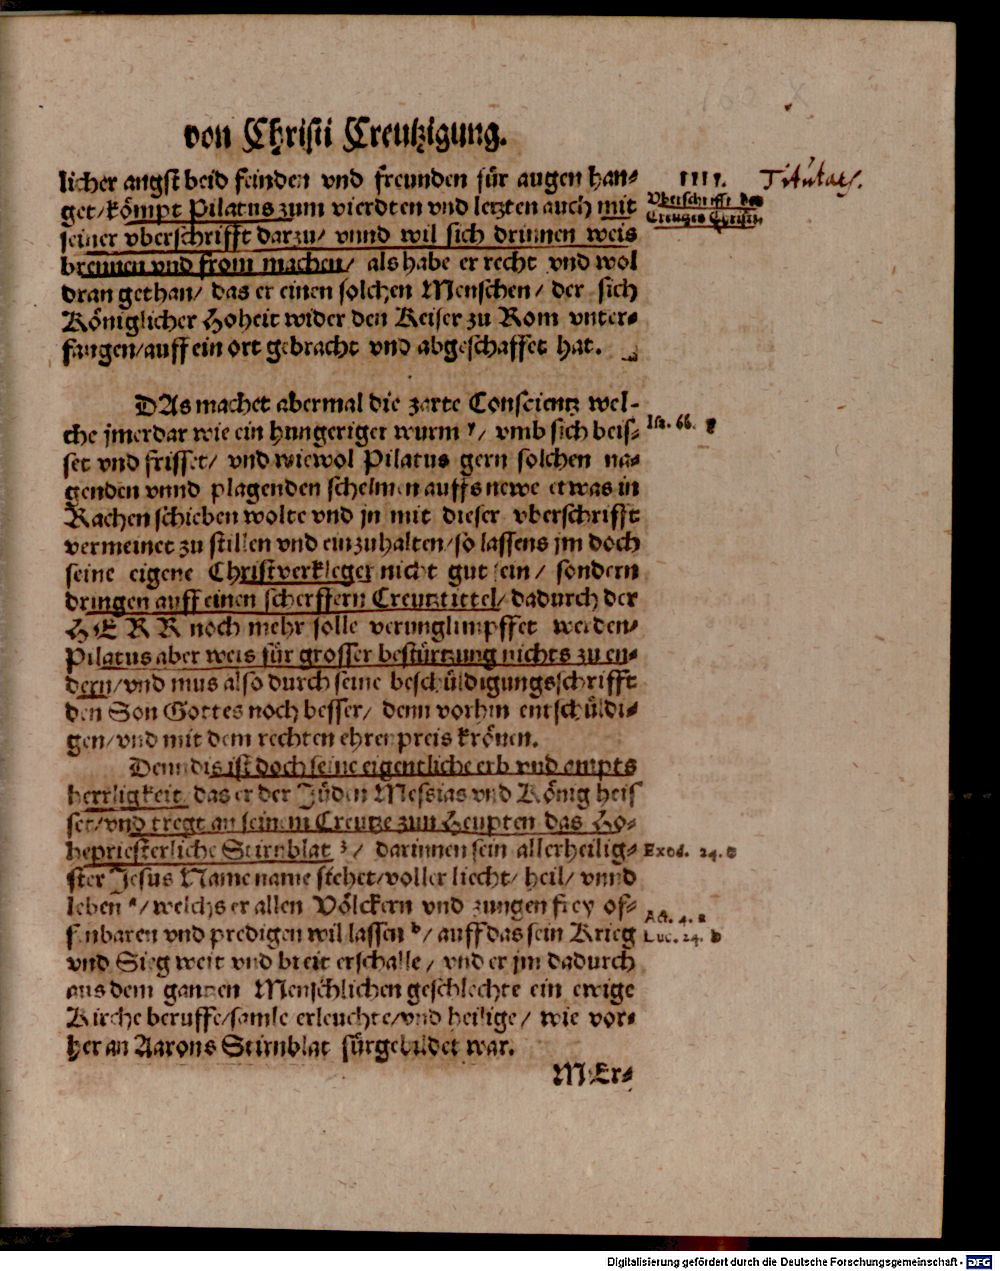 von Christi Creutzigung.
licher angst beid feinden vnd freunden für augen han-
get/ kömpt Pilatus zum vierdten vnd letzten auch mit
seiner vberschrifft darzu/ vnnd wil sich drinnen weis
brennen vnd from machen/ als habe er recht vnd wol
dran gethan/ das er einen solchen Menschen/ der sich
Königlicher Hoheit wider den Keiser zu Rom vnter-
fangen/ auff ein ort gebracht vnd abgeschaffet hat.
IIII. Titulus.
Vberschrifft des
Creutzes Christi.
DAs machet abermal die zarte Conscientz wel-
che jmerdar wie ein hungeriger wurm y/ vmb sich beis-
set vnd frisset/ vnd wiewol Pilatus gern solchen na-
genden vnnd plagenden schelmen auffs newe etwas in
Rachen schieben wolte vnd jn mit dieser vberschrifft
vermeinet zu stillen vnd einzuhalten/ so lassens jm doch
seine eigene Christverkleger nicht gut sein/ sondern
dringen auff einen scherffern Creutztittel/ dadurch der
HERR noch mehr solle verunglimpffet werden/
Pilatus aber weis für grosser bestürtzung nichts zu en-
dern/ vnd mus also durch seine beschüldigungsschrifft
den Son Gottes noch besser/ denn vorhin entschüldi-
gen/ vnd mit dem rechten ehrenpreis krönen.
Isa. 66. y
Denn dis ist doch seine eigentliche erb vnd ampts
herrligkeit, das er der Jüden Messias vnd König heis
set/ vnd tregt an seinem Creutze zun Heupten das Ho-
hepriesterliche Stirnblat z/ darinnen sein allerheilig-
ster Jesus Name name stehet/ voller liecht/ heil/ vnnd
leben a/ welchs er allen Völckern vnd zungen frey of-
fenbaren vnd predigen wil lassen b/ auff das sein Krieg
vnd Sieg weit vnd breit erschalle/ vnd er jm dadurch
aus dem gantzen Menschlichen geschlechte ein ewige
Kirche beruffe/ samle erleuchte/ vnd heilige/ wie vor-
her an Aarons Stirnblat fürgebildet war.
Exod. 24. z
Act. 4. a
Luc. 24. b
MEr-
Digitalisierung gefördert durch die Deutsche Forschungsgemeinschaft - DFG